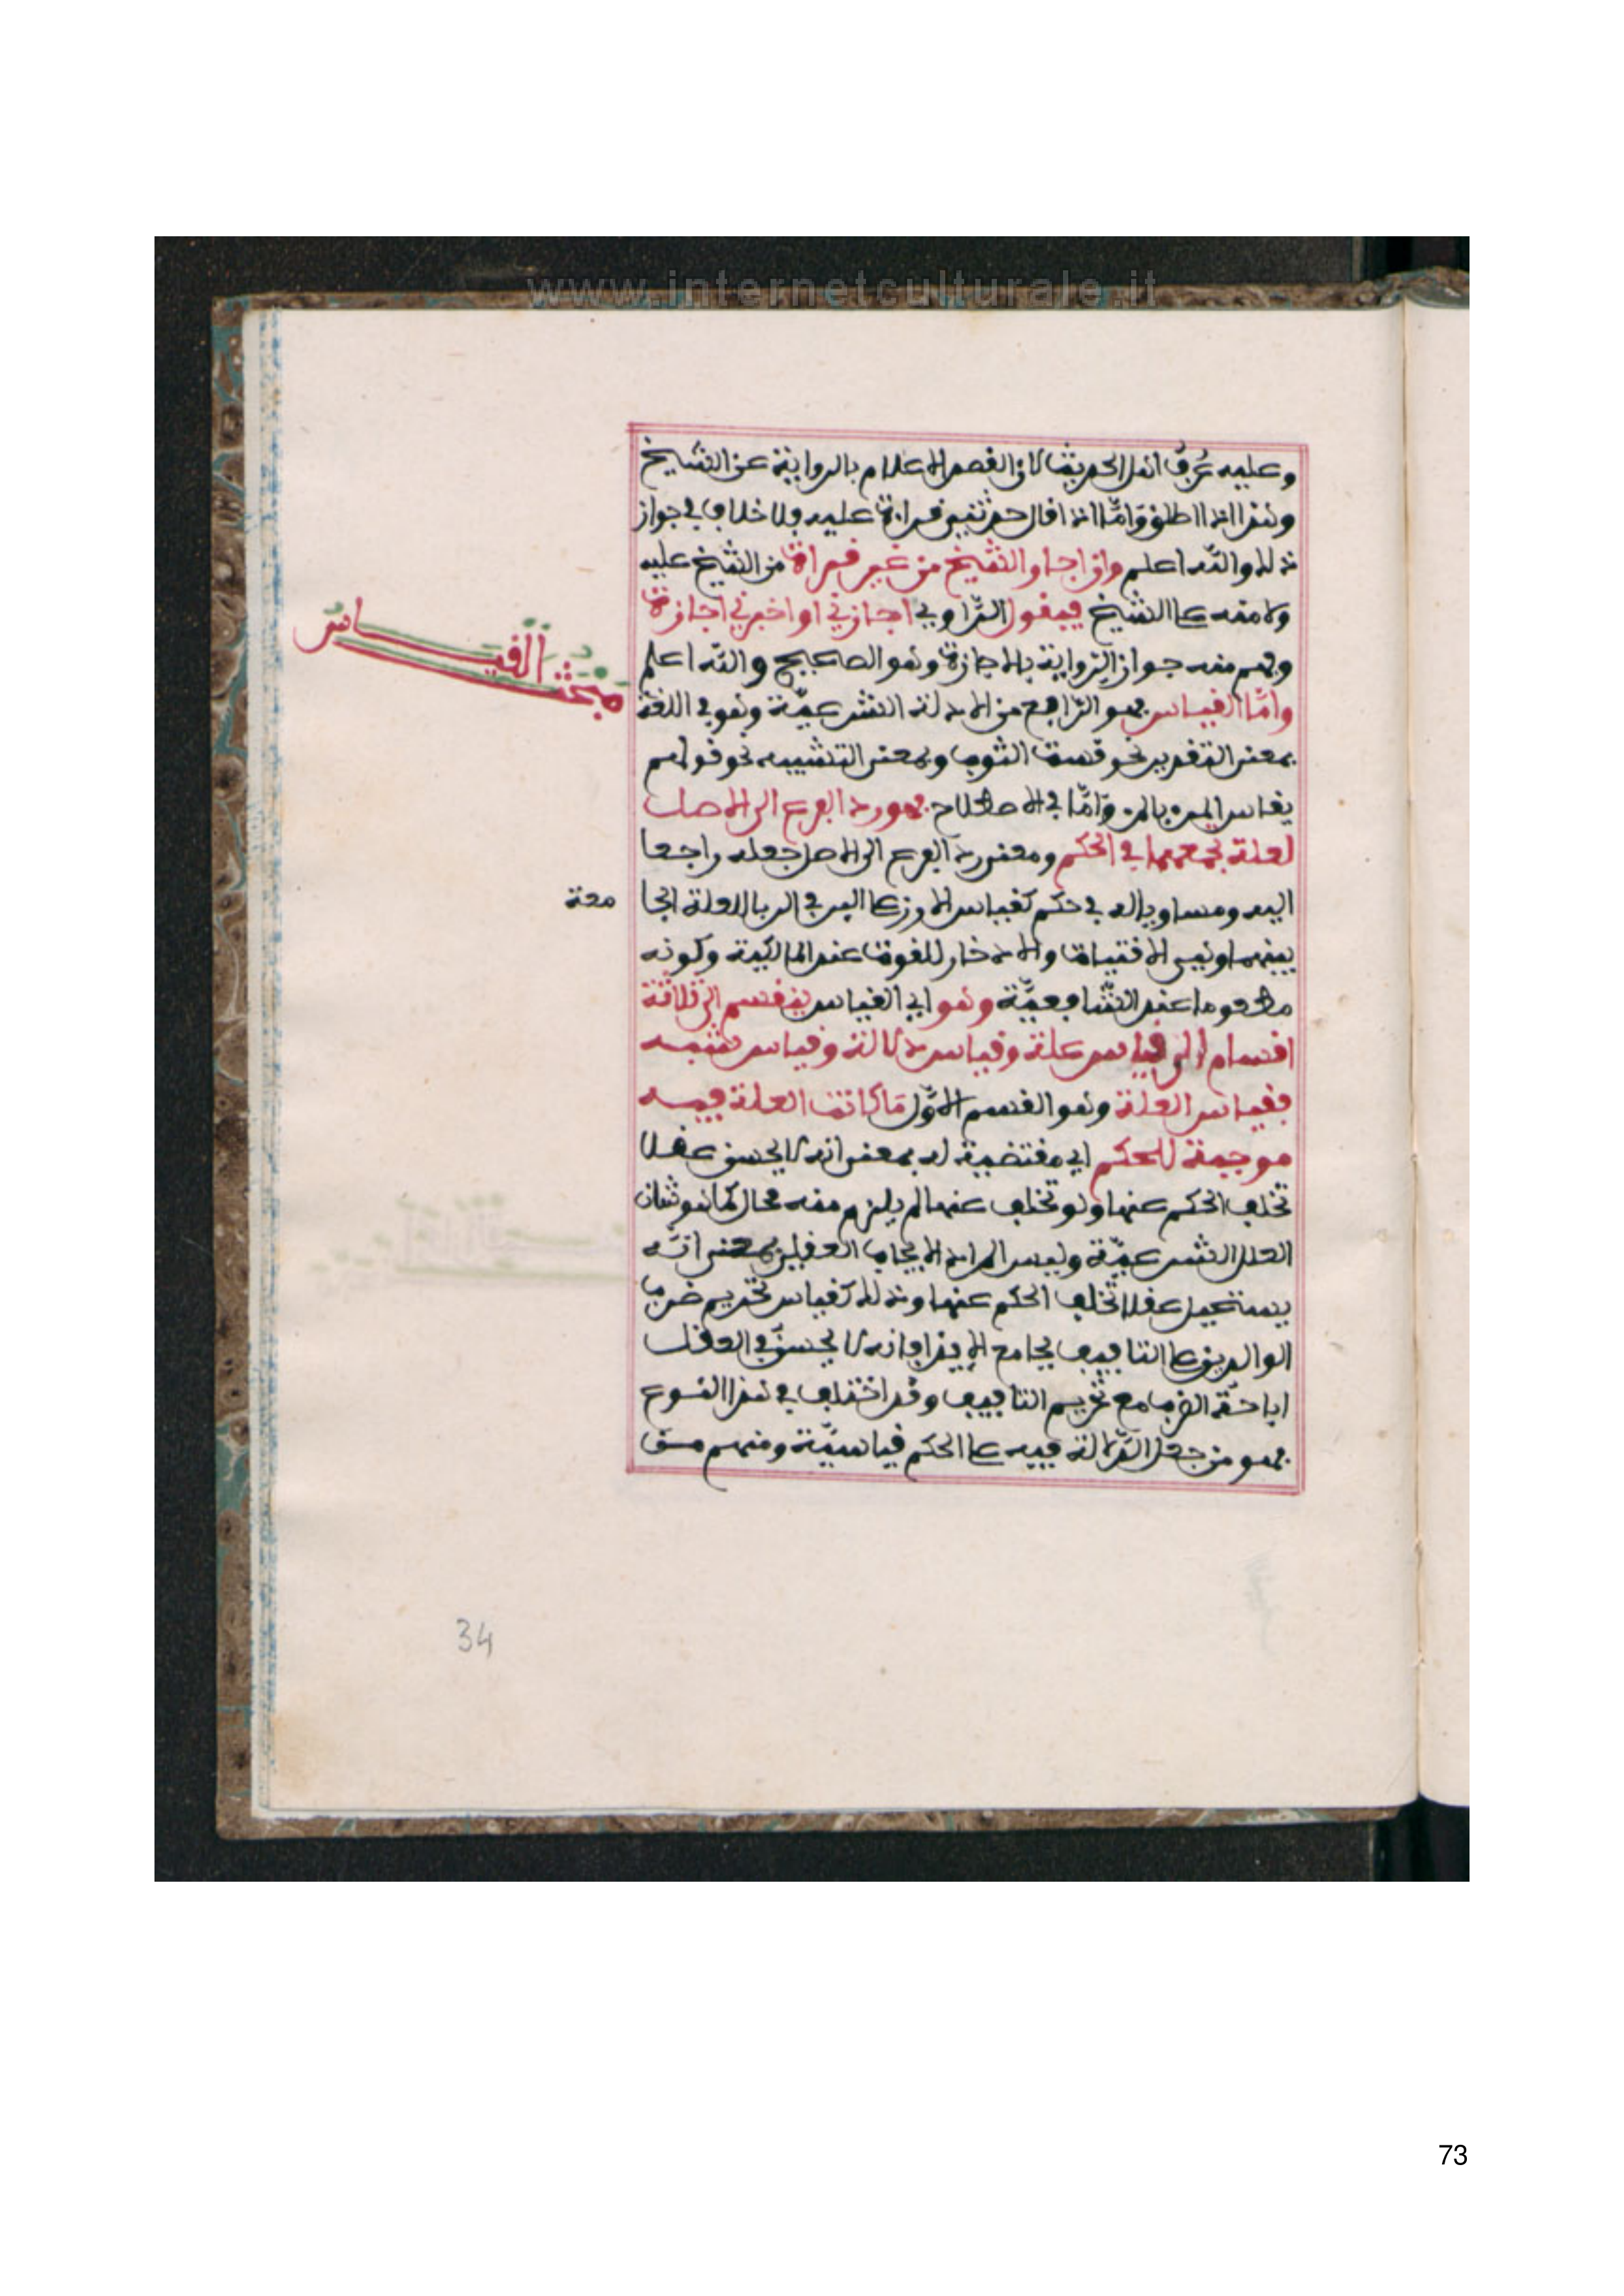 www.internetculturale.it
وعليه عُرف اهل الحديث لان القصد الاعلام بالرواية عن الشيخ
وهذا اذا اطلق وَامَّا اذا قال حدثني قراءة عليه فلا خلاف في جواز
ذلك والله اعلم وان اجاز الشيخ من غير قراءة من الشيخ عليه
ولا منه على الشيخ فيقول الرّاوي اجازني او اخبرني اجازة
وفهم منه جواز الرواية بالاجازة وهو الصحيح والله اعلم
مبحث القياس
وامّا القياس فهو الرّابع من الادلة الشرعيّة وهو في اللغة
بمعنى التقدير نحو قست الثوب وبمعنى التشبيه نحو قولهم
يقاس المرء بالمرء وَامَّا في الاصطلاح فهو رد الفرع الى الاصل
لعلة تجمعهما في الحكم ومعنى رد الفرع الى الاصل جعله راجعا
اليه ومساويا له في حكم كقياس الارز على البر في الربا للعلة الجا معة
بينهما وهي الاقتيات والادخار للقوت عند المالكية وكونه
مطعوما عند الشّافعيّة وهو اي القياس ينقسم الى ثلاثة
اقسام الى قياس علة وقياس دلالة وقياس شبه
فقياس العلة وهو القسم الاوّل مَا كانت العلة فيه
موجبة للحكم اي مقتضية له بمعنى انه لا يحسن عقلا
تخلف الحكم عنها ولو تخلف عنها لم يلزم منه محال كما هو شان
العلل الشرعيّة وليس المراد الايجاب العقلي بمعنى انّه
يستحيل عقلا تخلف الحكم عنها وذلك كقياس تحريم ضرب
الوالدين على التافيف بجامع الايذا فانه لا يحسن في العقل
اباحة الضرب مع تحريم التافيف وقد اختلف في هذا النوع
فمنهم من جعل الدّلالة فيه على الحكم قياسيّة ومنهم من
34
73